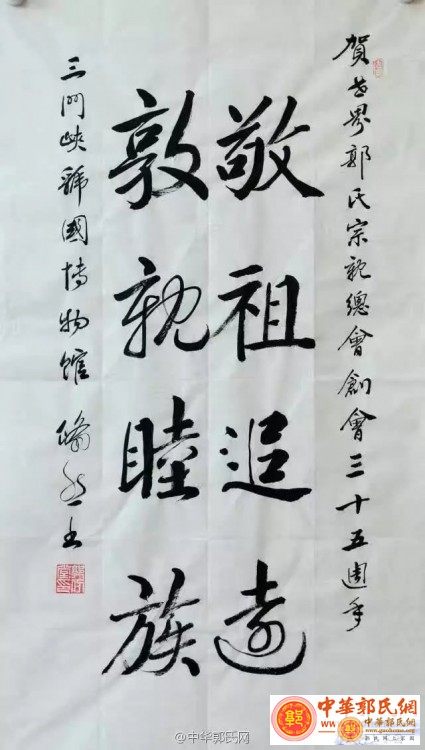 賀世界郭氏宗親總會創會三十五週年
敬祖追遠
敦親睦族
三門峽虢國博物館
@中华郭氏网
中華郭氏網
www.guohome.org
郭氏網上家園